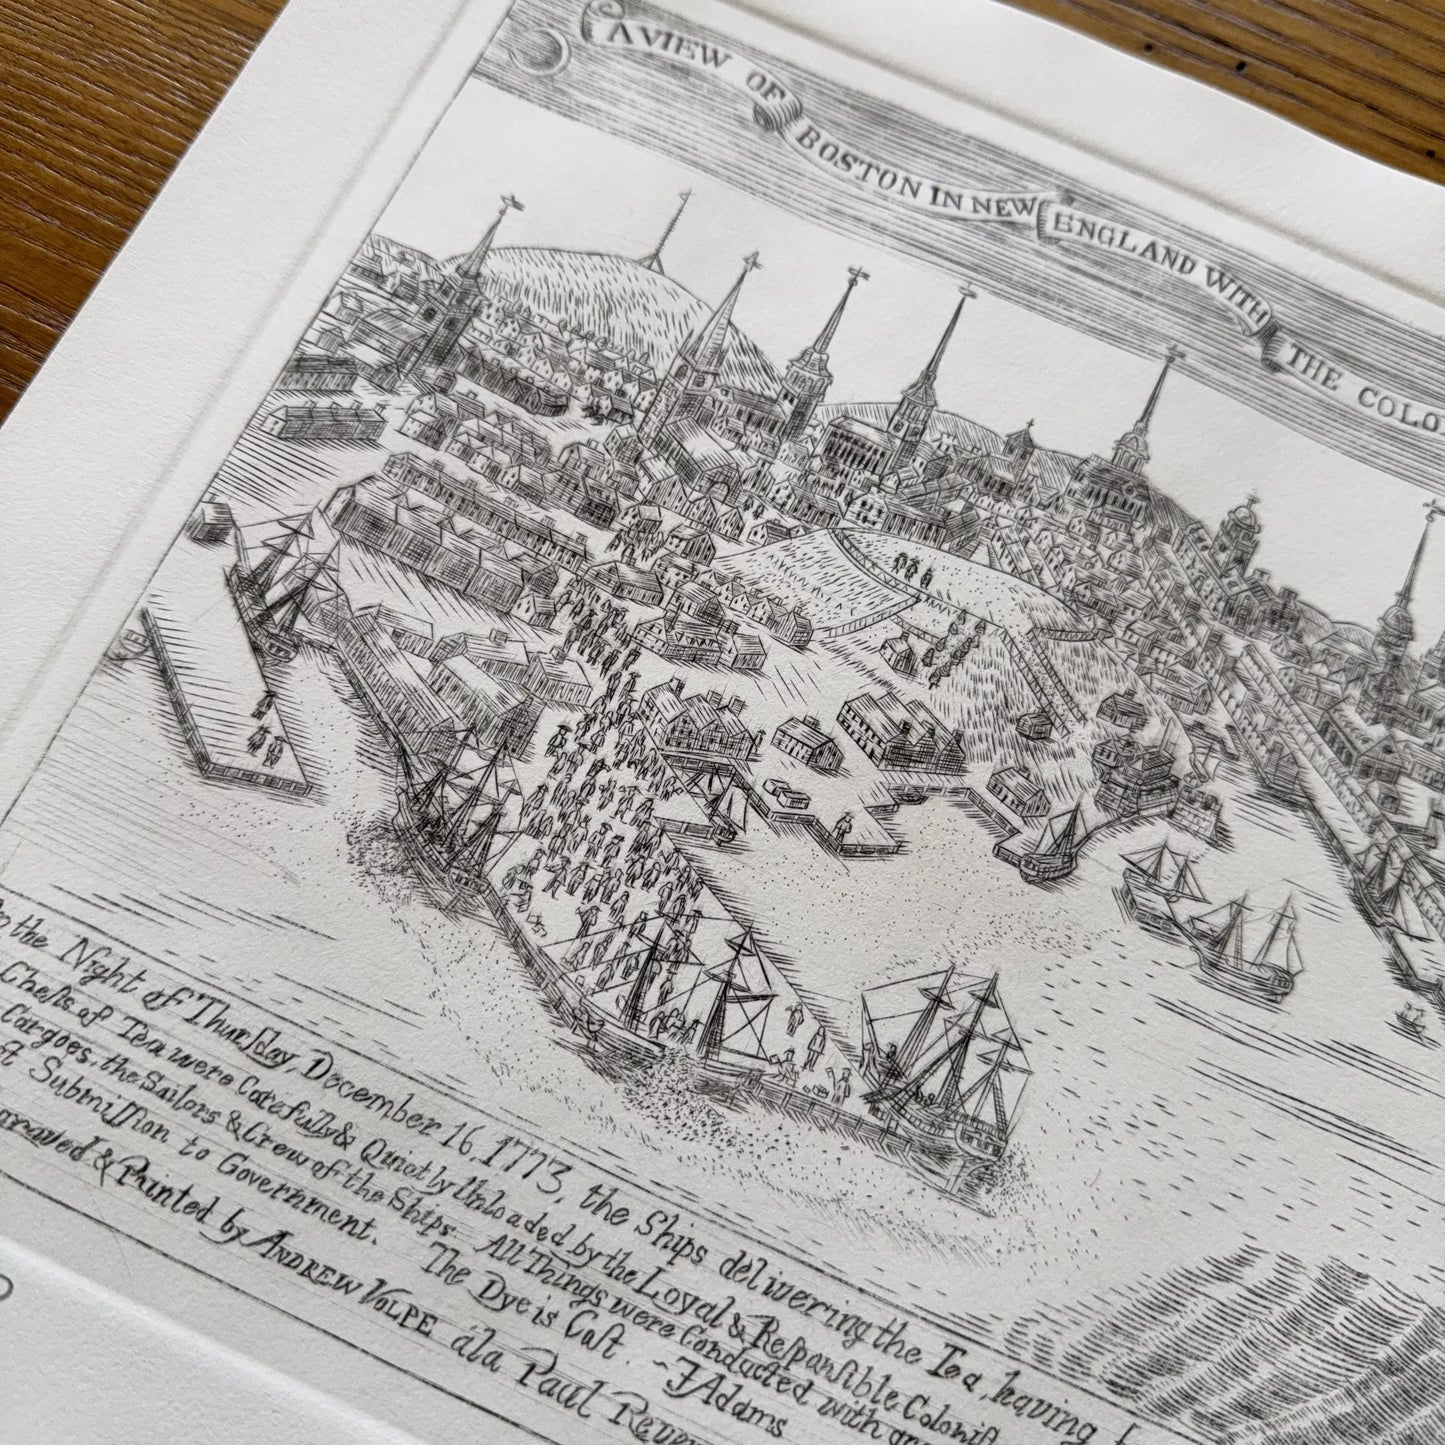 A VIEW OF BOSTON IN NEW ENGLAND WITH THE COLO
the Night of Thurſday, December 16, 1773, the Ships delivering the Tea, having
Cheſts of Tea were Carefully & Quietly Unloaded by the Loyal & Reſponſible Coloniſ
Cargoes, the Sailors & Crew of the Ships. All Things were Conducted with
Submiſſion to Government. The Dye is Caſt. - J Adams
graved & Printed by ANDREW VOLPE ála Paul Rever